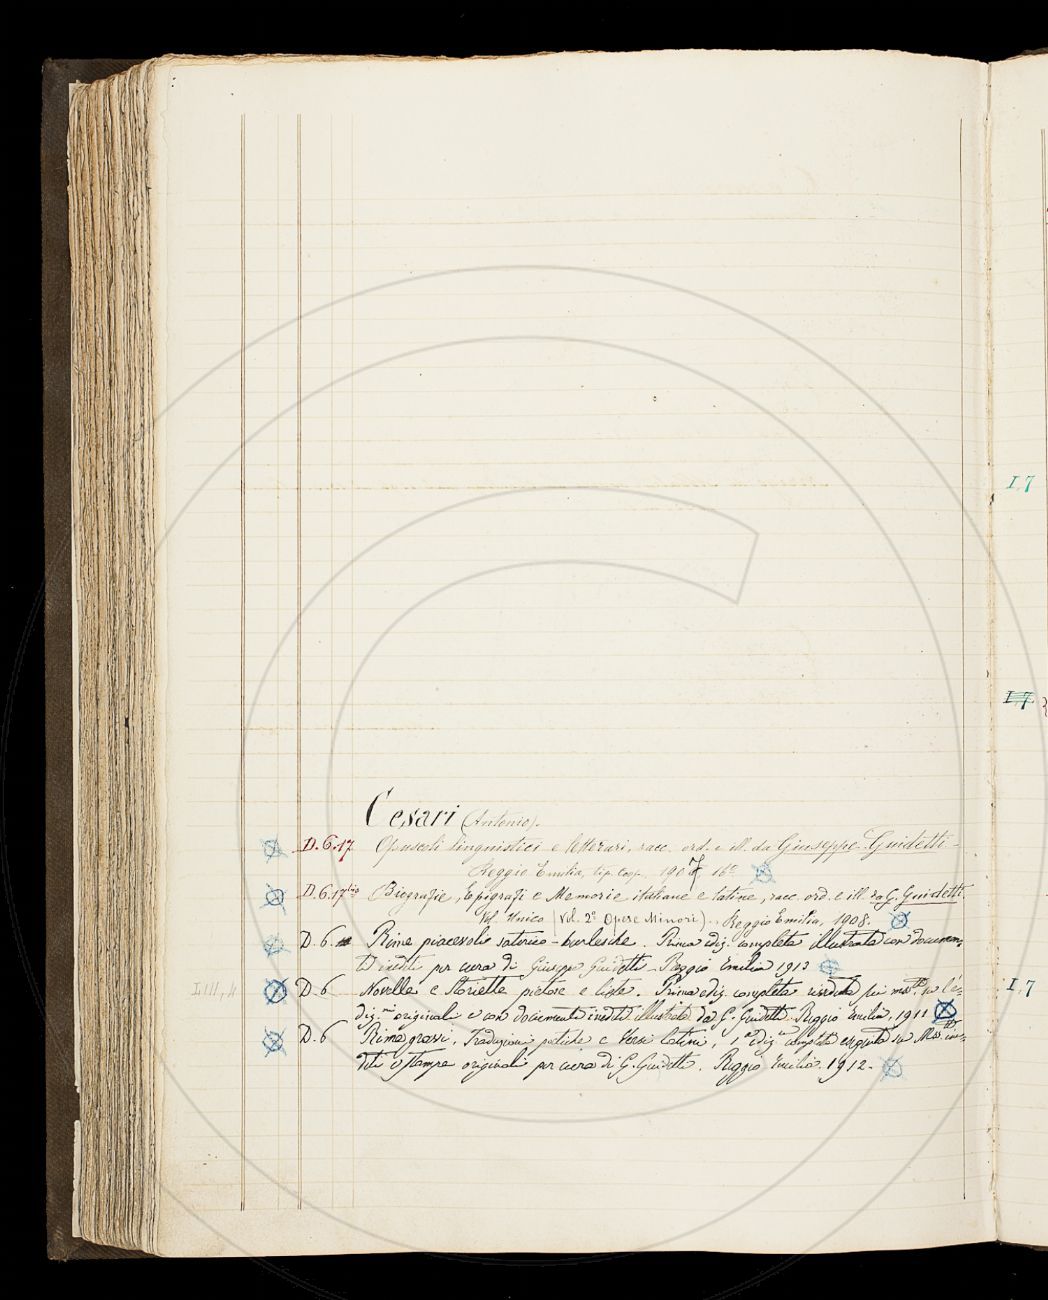 Cesari (Antonio).
D.6.17 Opuscoli linguistici e letterari, racc. ord. e ill. da Giuseppe Guidetti -
Reggio Emilia, tip. Coop., 1907 16º
D.6.17bis Biografie, Epigrafi e Memorie italiane e latine, racc. ord. e ill. da G. Guidetti
Vol. Unico (Vol. 2º Opere Minori). Reggio Emilia, 1908.
D.6 Rime piacevoli satirico-burlesche. Prima ediz. completa illustrata con documen-
ti inediti per cura di Giuseppe Guidetti - Reggio Emilia 1913
I.III,4 D.6 Novelle e Storiette pietose e liete. Prima ediz. completa riveduta sui mss.tti per l'e-
diz.ne originali e con documenti inediti illustrata da G. Guidetti. Reggio Emilia, 1911
D.6 Rime gravi, Traduzioni poetiche e Versi latini, 1ª ediz. completa eseguita su Mss. ine-
diti e stampe originali per cura di G. Guidetti. Reggio Emilia. 1912.
I.7
I.7
I.7